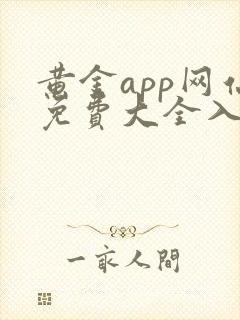 黄金app网
免費大全入
一家人間